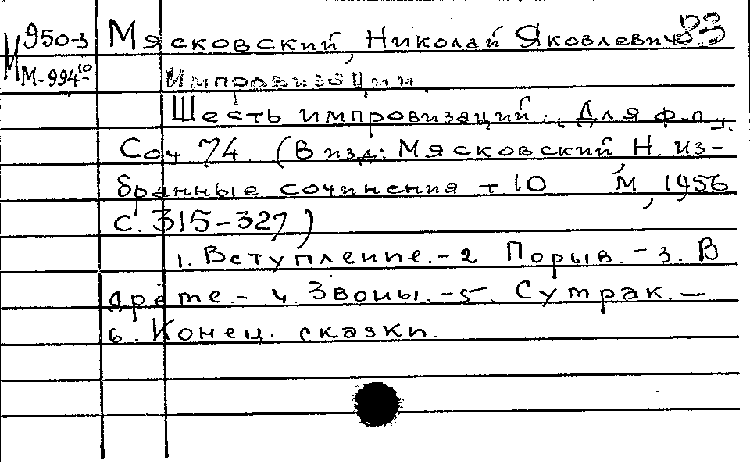 И 950-3 Мясковский, Николай Яковлевич 33
М-994¹⁰ Импровизации
Шесть импровизаций. Для ф.п.,
Соч 74. (В изд: Мясковский, Н. Из-
бранные сочинения т. 10 М, 1956
с. 315-327)
1. Вступление. - 2 Порыв. - 3. В
дреме. - 4. Звоны. - 5. Сутрак. -
6. Конец. сказки.